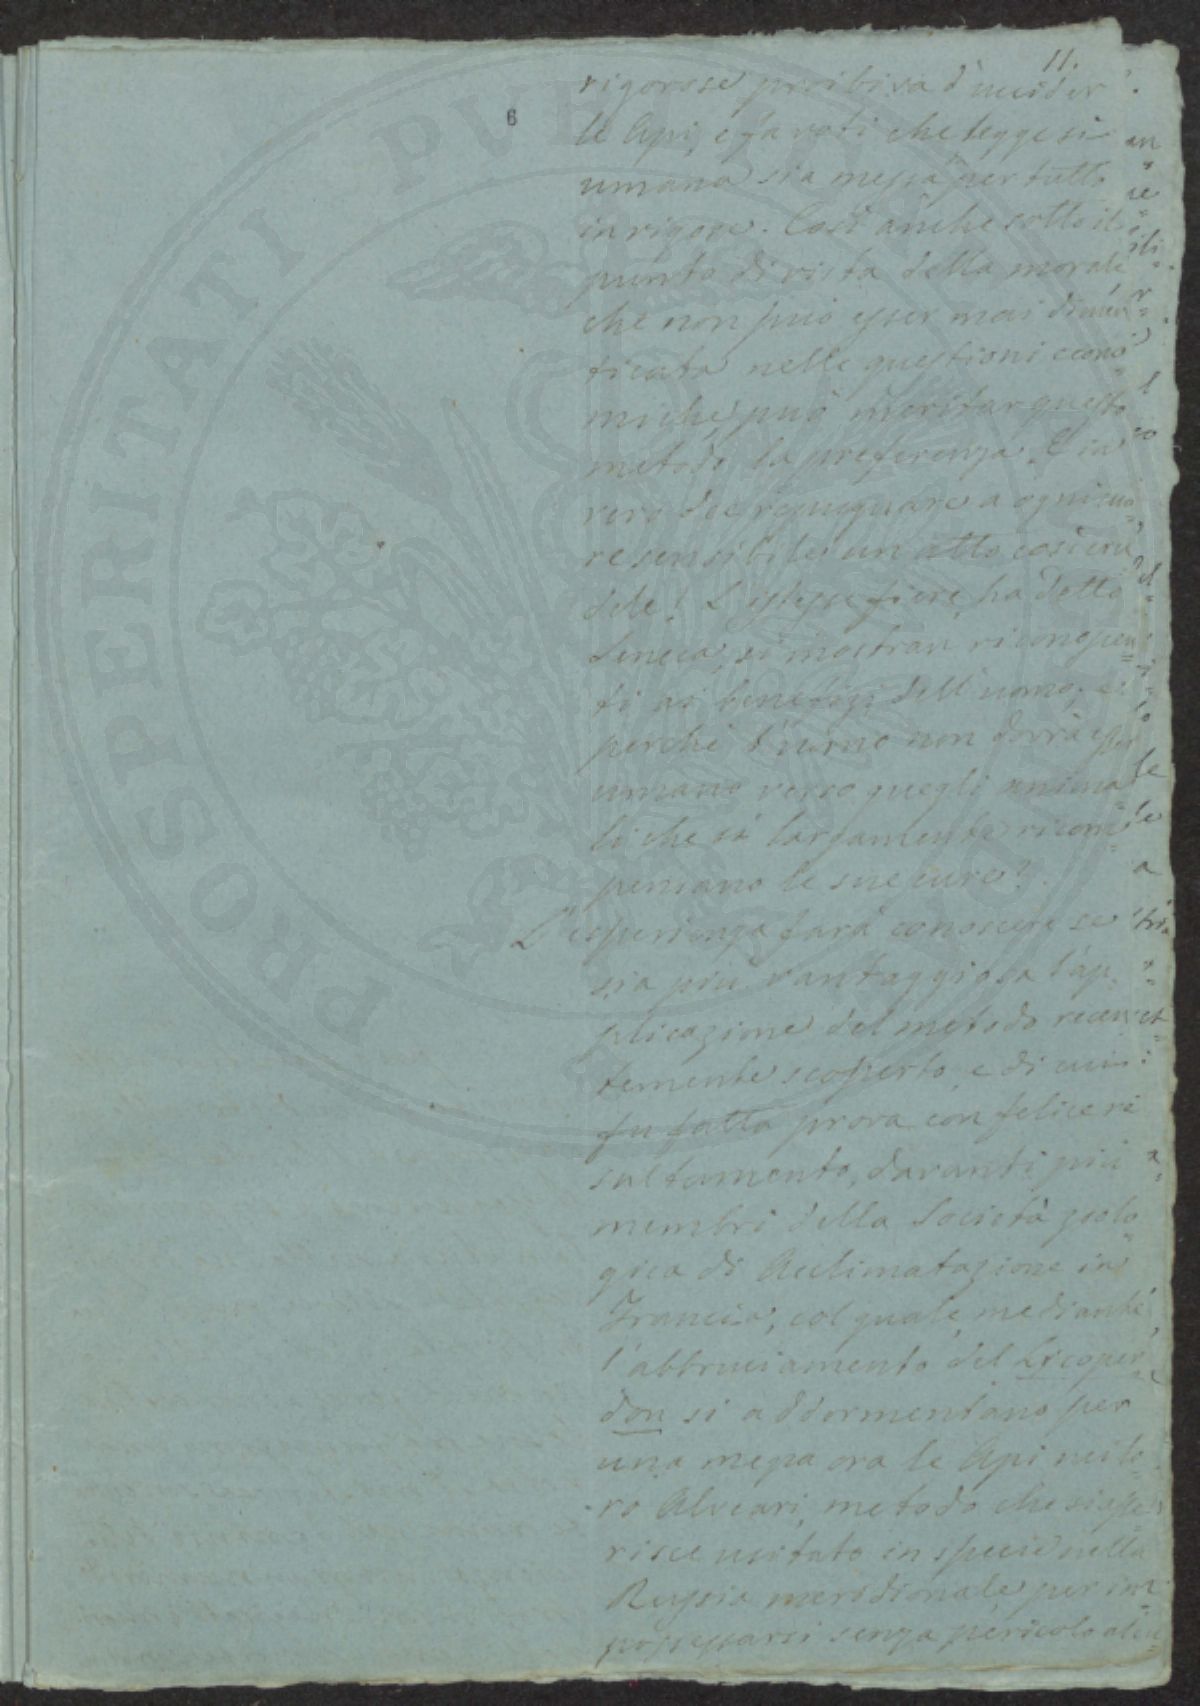 11.
6
rigorose proibiva d'uccider
le Api, e fa voti che legge sì
umana sia messa per tutto
in rigore. Così anche sotto il
punto di vista della morale
che non può esser mai dimen
ticata nelle questioni econo
miche, può meritar questo
metodo la preferenza. E in
vero dee repugnare a ogni cuo
re sensibile un atto così cru
dele! L'istesse fiere, ha detto
Seneca, si mostran riconoscen
ti ai benefizi dell'uomo, e
perchè l'uomo non dovrà esser
umano verso quegli anima
li che sì largamente ricom
pensano le sue cure?
L'esperienza farà conoscere se
sia più vantaggiosa l'ap
plicazione del metodo recen
temente scoperto, e di cui
fu fatta prova con felice ri
sultamento, davanti più
membri della Società zoolo
gica di Acclimatazione in
Francia, col quale, mediante
l'abbruciamento del Licoper
don si addormentano per
una mezza ora le Api nei lo
ro Alveari, metodo che si asse
risce usitato in specie nella
Russia meridionale per im
possessarsi senza pericolo alcu
PROSPERITATI PUBLICAE